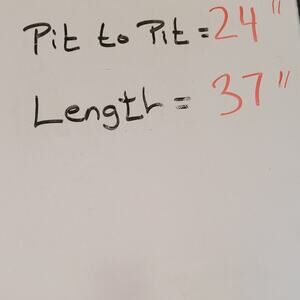 Pit to Pit = 24"
Length = 37"